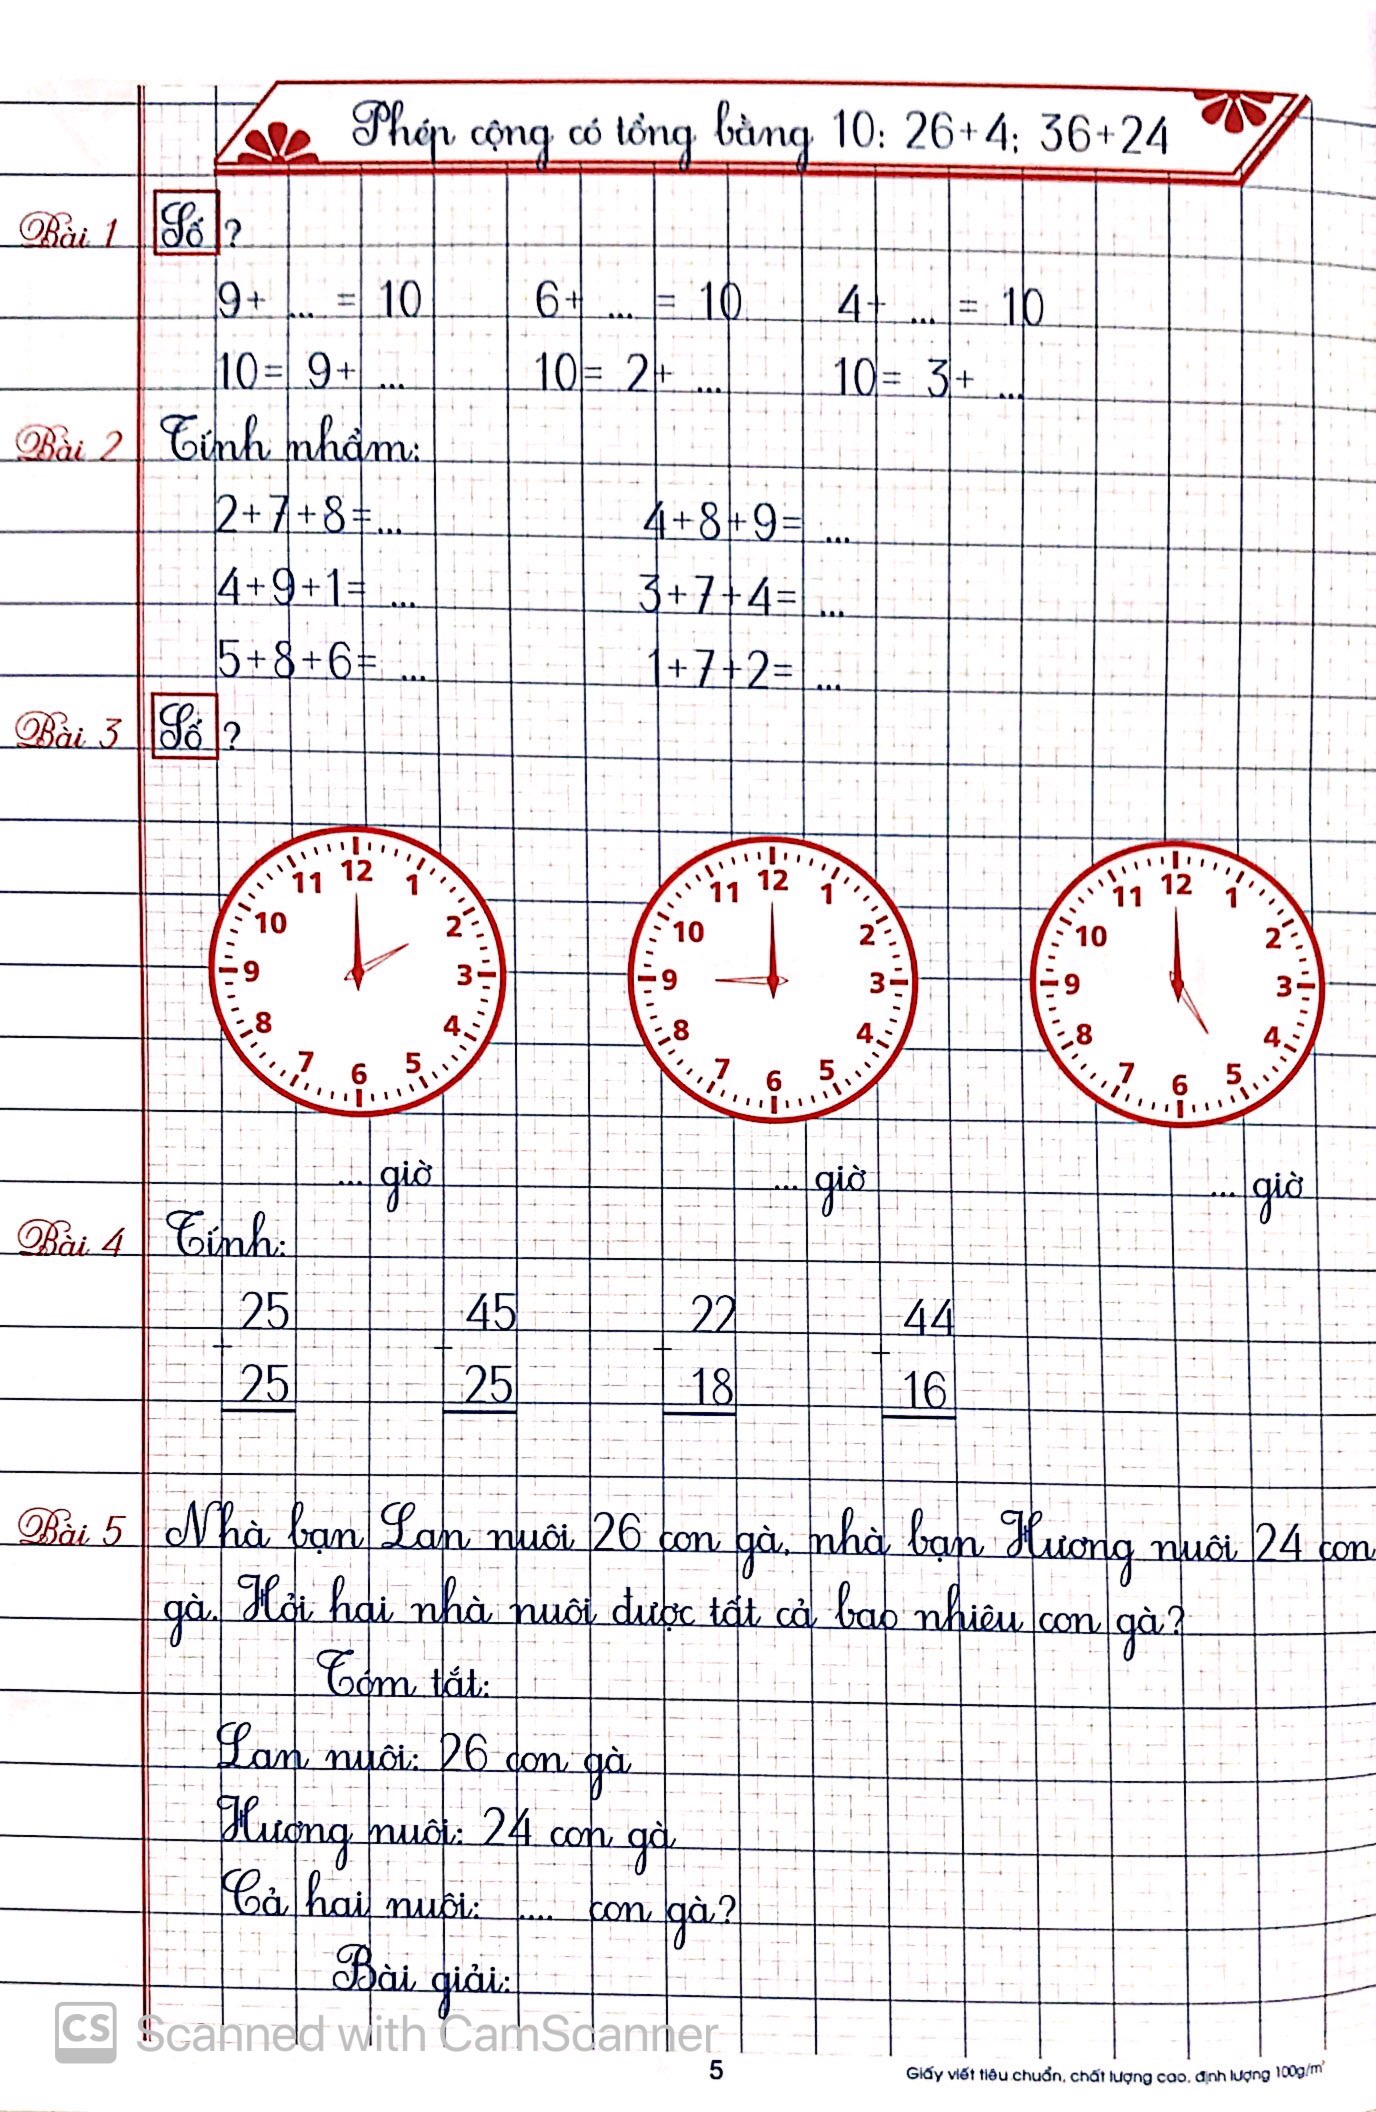 Phép cộng có tổng bằng 10: 26+4; 36+24
Bài 1 Số ?
9+ ... = 10 6+ ... = 10 4+ ... = 10
10= 9+ ... 10= 2+ ... 10= 3+ ...
Bài 2 Tính nhẩm:
2+7+8=... 4+8+9= ...
4+9+1= ... 3+7+4= ...
5+8+6= ... 1+7+2= ...
Bài 3 Số ?
12 1 2 3 4 5 6 7 8 9 10 11
12 1 2 3 4 5 6 7 8 9 10 11
12 1 2 3 4 5 6 7 8 9 10 11
... giờ ... giờ ... giờ
Bài 4 Tính:
25 45 22 44
+ + + +
25 25 18 16
Bài 5 Nhà bạn Lan nuôi 26 con gà, nhà bạn Hương nuôi 24 con
gà. Hỏi hai nhà nuôi được tất cả bao nhiêu con gà?
Tóm tắt:
Lan nuôi: 26 con gà
Hương nuôi: 24 con gà
Cả hai nuôi: .... con gà?
Bài giải:
CS Scanned with CamScanner
5
Giấy viết tiêu chuẩn, chất lượng cao, định lượng 100g/m²